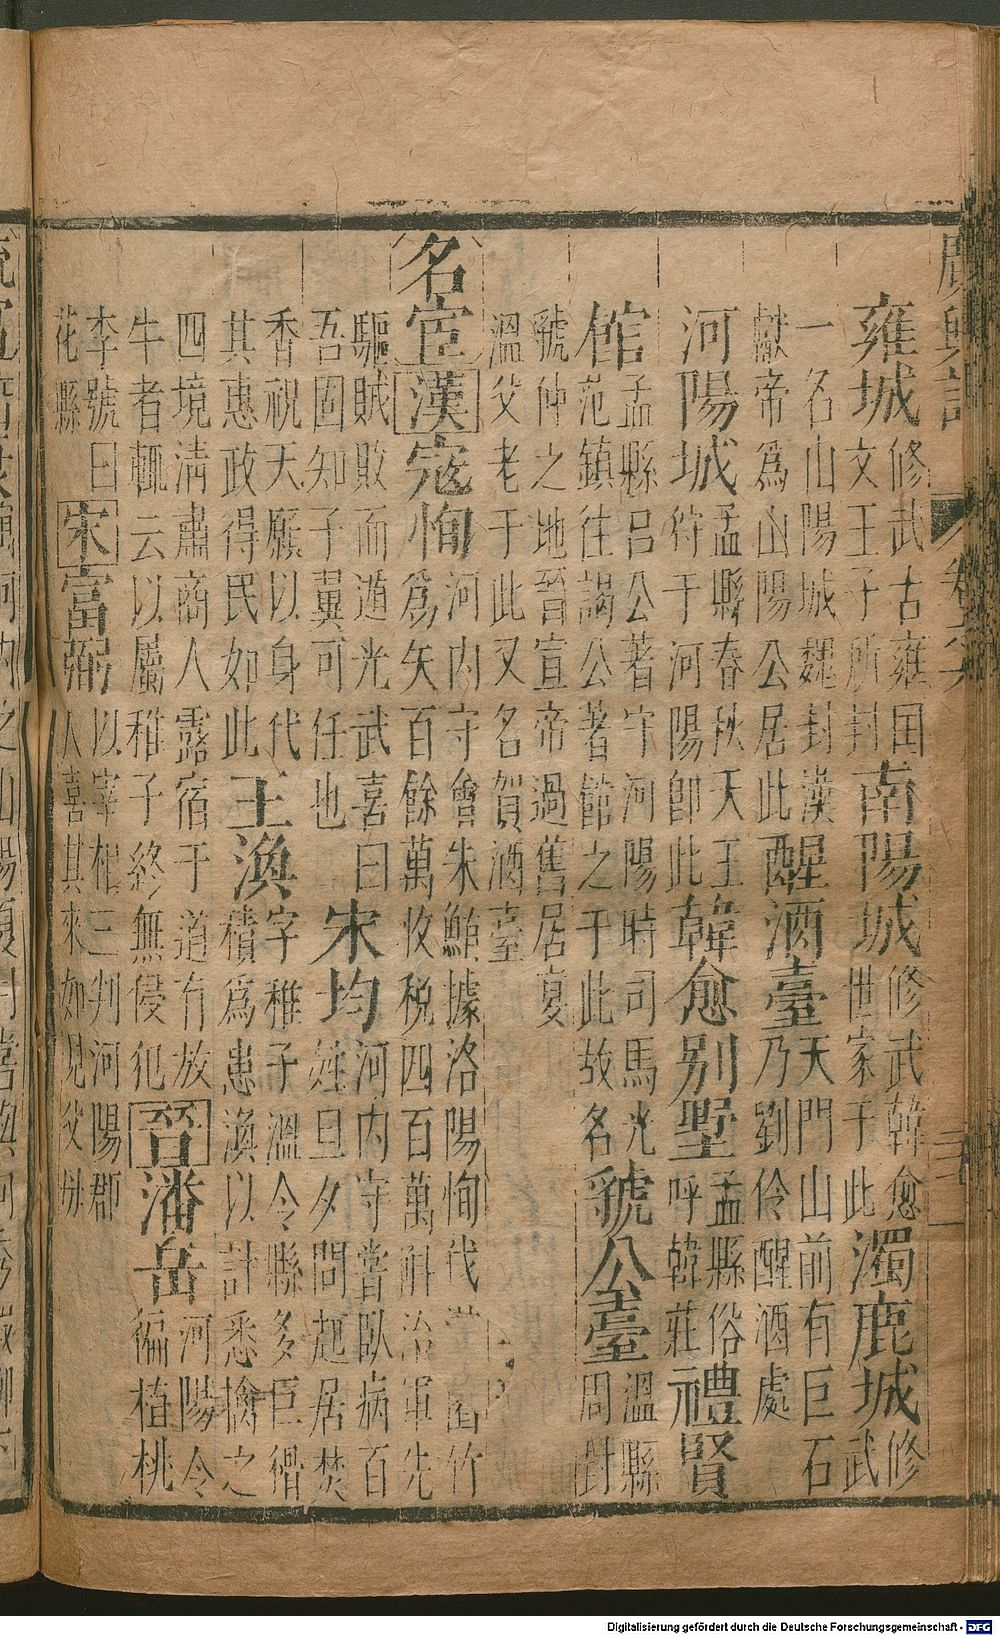 廣輿記
雍城修武古雍囯文王子所封南陽城修武韓愈世家于此濁鹿城修武
一名山陽城魏封漢獻帝爲山陽公居此醒酒臺天門山前有巨石乃劉伶醒酒處
河陽城孟縣春秋天王狩于河陽卽此韓愈别墅孟縣俗呼韓莊禮賢
館孟縣呂公著守河陽時司馬光范鎮往謁公著館之于此故名虢公臺溫縣周封
虢仲之地晉宣帝過舊居宴溫父老于此又名賀酒臺
名宦漢寇恂河内守會朱鮪據洛陽恂伐淇園竹爲矢百餘萬收稅四百萬斛治軍先
驅賊敗而遁光武喜曰吾固知子翼可任也宋均河内守嘗臥病百姓旦夕問起居焚
香祝天願以身代其惠政得民如此王渙字稚子溫令縣多巨猾積爲患渙以計悉擒之
四境淸肅商人露宿于道有放牛者輒云以屬稚子終無侵犯晉潘岳河陽令徧植桃
李號曰花縣宋富弼以宰相三判河陽郡人喜其來如見父母
Digitalisierung gefördert durch die Deutsche Forschungsgemeinschaft - DFG